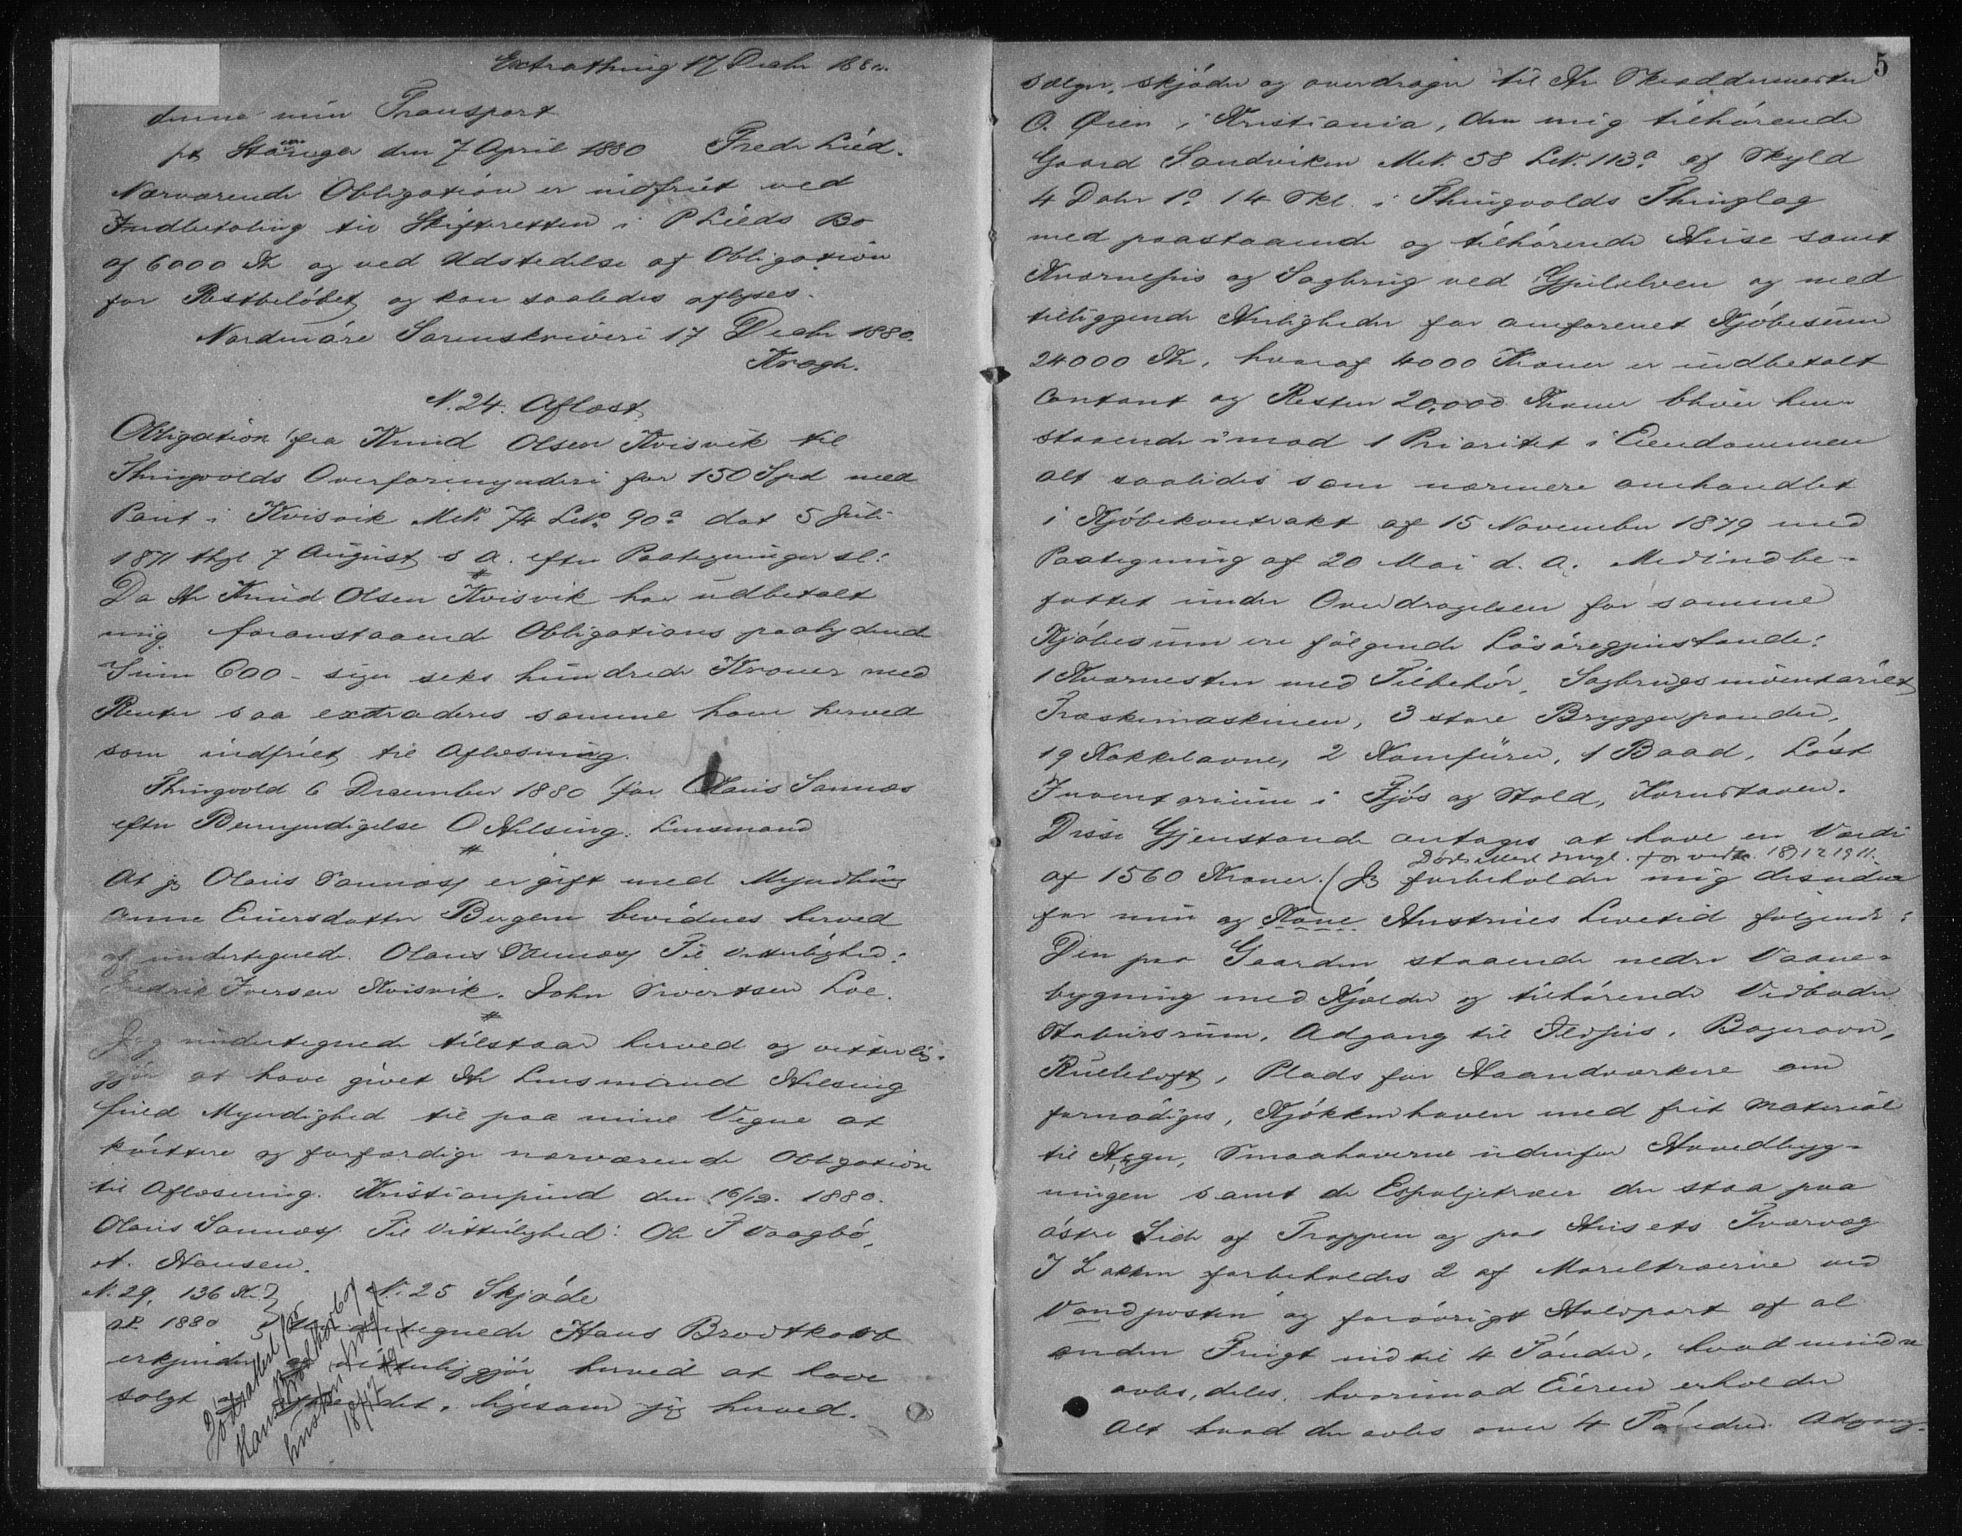 Extrathing 17 Decbr 1880.
denne min Transport
pt Stavanger den 7 April 1880 Fredr Lied.
Nærværende Obligation er indfriet ved
Indbetaling til Skifteretten i P Lieds Bo
af 6000 Kr og ved Udstedelse af Obligation
for Restbeløbet og kan saaledes aflyses.
Nordmøre Sorenskriveri 17 Decbr 1880.
Krogh.
N. 24. Aflæst
Obligation fra Knud Olsen Kvisvik til
Thingvolds Overformynderi for 150 Spd med
Pant i Kvisvik Mt. No 74 Lt. No 90a dat 5 Juli
1871 thgl 7 August s a. efter Paategninger sl:
Da Hr Knud Olsen Kvisvik har udbetalt
mig foranstaaende Obligations paalydende
Sum 600 - siger seks hundrede Kroner med
Renter saa extraderes samme ham herved
som indfriet til Aflæsning.
Thingvold 6 December 1880 for Olaus Sannæs
efter Bemyndigelse O Helsing. Lensmand
At jeg Olaus Sannæs er gift med Myndling
Anne Eliersdatter Bergem bevidnes herved
af undertegnede. Olaus Sannæs Til Vitterlighed:
Fredrik Iversen Kvisvik. John Sivertsen Loe.
Jeg undertegnede tilstaar herved og vitterlig-
gjør at have givet Hr Lensmand Helsing
fuld Myndighed til paa mine Vegne at
kvittere og forfærdige nærværende Obligation
til Aflæsning. Kristianssund den 16/12. 1880.
Olaus Sannæs Til Vitterlighed: Ole T Vaagbø,
A. Hansen.
N. 29. 136 Kr N. 25 Skjøde
1880 Undertegnede Hans Brodtkorb
erkjender og vitterliggjør herved at have
solgt ligesom jeg herved.
Dødsattest for
Hans Brodtkorb og
hustru tingl.
18/12 1911
5
sælger, skjøder og overdrager til Hr Skræddermester
O. Øien i Kristiania, den mig tilhørende
Gaard Sandviken Mt. 58 Lt. 113a af Skyld
4 Daler 1 o 14 Skl. i Thingvolds Thinglag
med paastaaende og tilhørende Huse samt
Kværnehus og Sagbrug ved Gjulelven og med
tilliggende Herligheder for omforenet Kjøbesum
24000 Kr, hvoraf 4000 Kroner er indbetalt
Contant og Resten 20,000 Kroner bliver hen-
staaende imod 1 Prioritet i Eiendommen
alt saaledes som nærmere omhandlet
i Kjøbekontrakt af 15 November 1879 med
Paategning af 20 Mai d. A. Medindbe-
fattet under Overdragelsen for samme
Kjøbesum ere følgende Løsøregjenstande:
1 Kværnesten med Tilbehør, Sagbrugsinventariet
Træskemaskinen, 3 store Bryggepander,
19 Kakkelovne, 2 Komfürer, 1 Baad, Løst
Inventarium i Fjøs og Stald, Kornstaven.
Disse Gjenstande antages at have en Værdi
Dødsattest tingl. for vedk. 18/12 1911.
af 1560 Kroner. (Jeg forbeholder mig desuden
for min og Kone Hustrues Levetid følgende:
Den paa Gaarden staaende nedre Vaane-
bygning med Kjælder og tilhørende Vedboder
Stabursrum, Adgang til Ildhus, Bagerovn,
Rulleloft, Plads for Haandværkere om
fornødiges, Kjøkkenhaven med frit Materiale
til Hegn, Smaahaverne udenfor Hovedbyg-
ningen samt de Espaljetræer der staa paa
østre Side af Trappen og paa Husets Tværvæg
I Lakken forbeholdes 2 af Moreltræerne ved
Vandposten og forøvrigt Halvpart af al
anden Frugt indtil 4 Tønder, hvad mindre
avles, deles, hvorimod Eieren erholder
Alt hvad der avles over 4 Tønder. Adgang